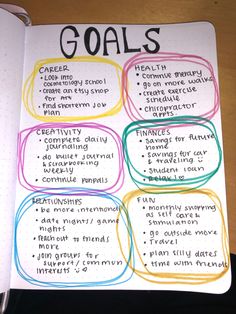 GOALS
CAREER
• Look into
cosmetology school
• create an etsy shop
for art
• find shorterm job
plan
HEALTH
• Continue therapy
• go on more walks
• create exercise
schedule
• chiropractor
appts.
CREATIVITY
• complete daily
journaling
• do bullet journal
& scrapbooking
weekly
• continue penpals
FINANCES
• Savings for future
home
• Savings for car
& traveling
• Student loan
RELATIONSHIPS
• be more intentional
• date nights/ game
nights
• reach out to friends
more
• Join groups for
support/common
interests
FUN
• monthly shopping
as self care &
stimulation
• go outside more
• Travel
• plan silly dates
• time with friends